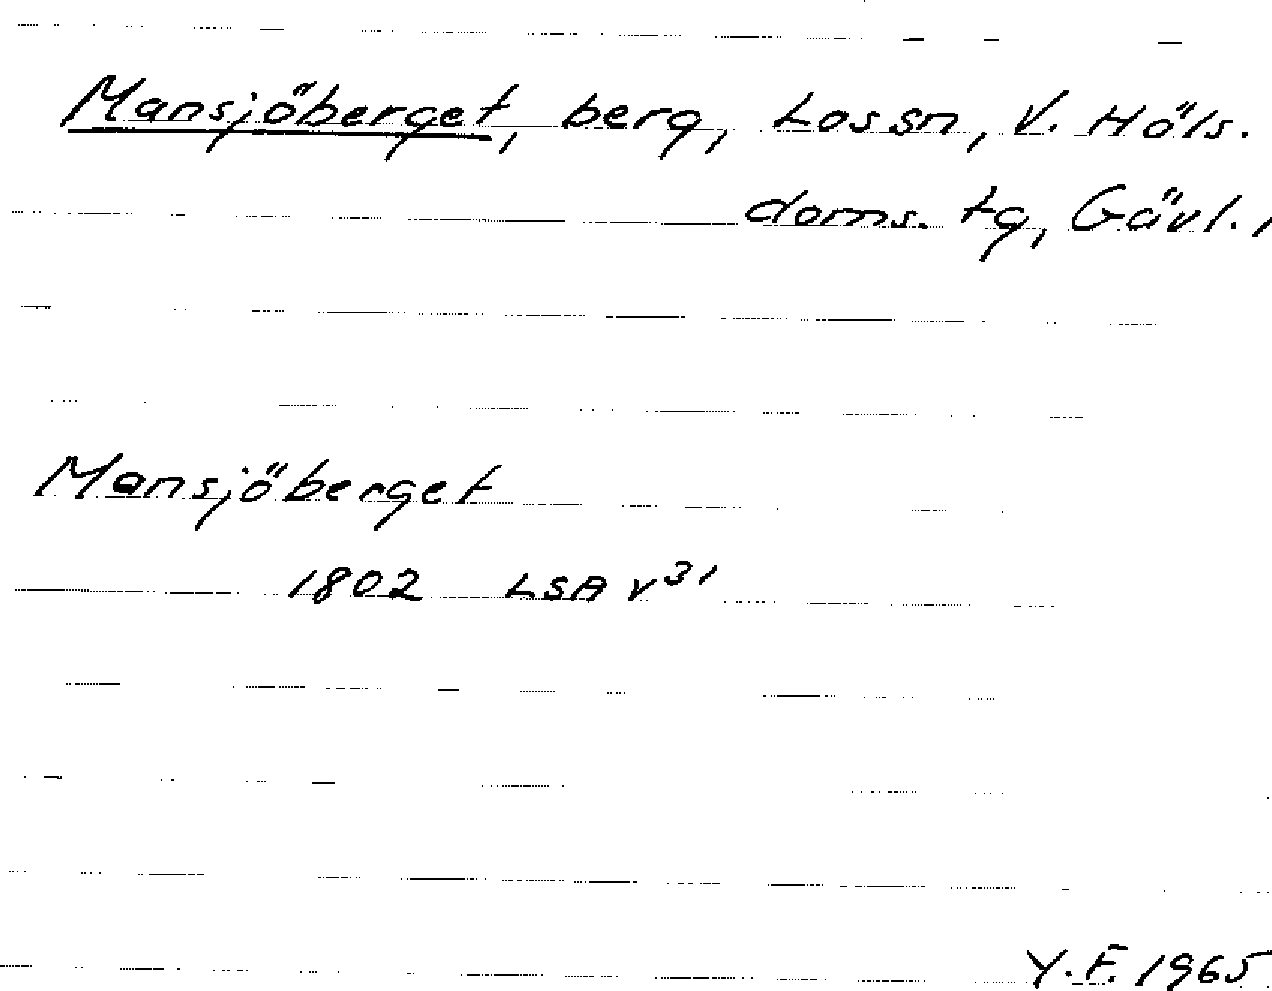 Mansjöberget, berg, Lossn, V. Häls.
doms. tg, Gävl. l
Mansjöberget
1802 LSA v 31
Y.F. 1965